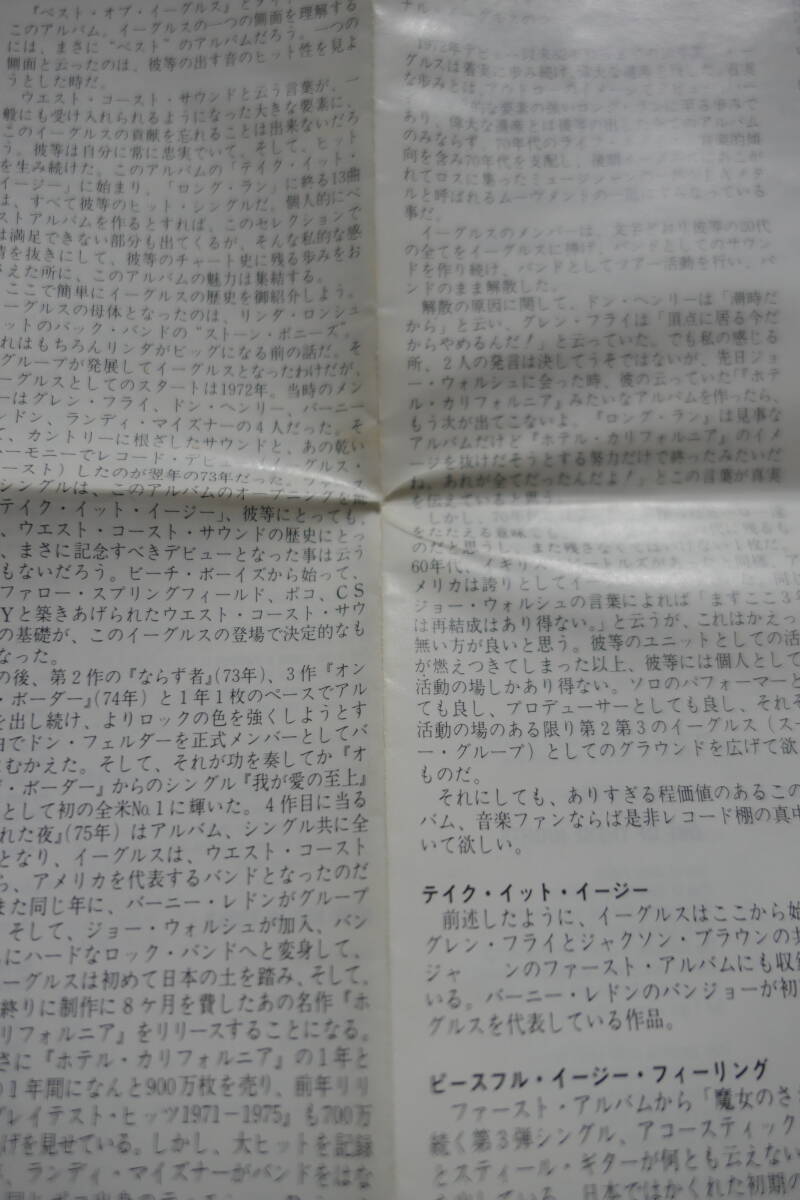 『ベスト・オブ・イーグルス』と
このアルバム。イーグルスの一つの側面を理解する
には、まさに“ベスト”のアルバムだろう。一つの
側面と云ったのは、彼等の出す音のヒット性を見よ
うとした時だ。
ウエスト・コースト・サウンドと云う言葉が、一
般にも受け入れられるようになった大きな要素に、
このイーグルスの貢献を忘れることは出来ないだろ
う。彼等は自分に常に忠実でいて、そして、ヒット
を生み続けた。このアルバムの「テイク・イット・
イージー」に始まり、「ロング・ラン」に終る13曲
は、すべて彼等のヒット・シングルだ。個人的にベ
ストアルバムを作るとすれば、このセレクションで
は満足できない部分も出てくるが、そんな私的な感
情を抜きにして、彼等のチャート史に残る歩みをお
さえた所に、このアルバムの魅力は集結する。
ここで簡単にイーグルスの歴史を御紹介しよう。
ーグルスの母体となったのは、リンダ・ロンシュ
ットのバック・バンドの“ストーン・ポニーズ”。
れはもちろんリンダがビッグになる前の話だ。そ
グループが発展してイーグルスとなったわけだが、
ーグルスとしてのスタートは1972年。当時のメン
ーはグレン・フライ、ドン・ヘンリー、バーニー
ンドン、ランディ・マイズナーの4人だった。そ
て、カントリーに根ざしたサウンドと、あの乾い
ーモニーでレコード・デビ グルス・
ースト)したのが翌年の73年だった。
シングルは、このアルバムのオープニングを
テイク・イット・イージー」、彼等にとっても、
、ウエスト・コースト・サウンドの歴史にとっ
、まさに記念すべきデビューとなった事は云う
もないだろう。ビーチ・ボーイズから始って、
ファロー・スプリングフィールド、ポコ、CS
Yと築きあげられたウエスト・コースト・サウ
の基礎が、このイーグルスの登場で決定的なも
なった。
の後、第2作の『ならず者』(73年)、3作『オン
・ボーダー』(74年)と1年1枚のペースでアル
を出し続け、よりロックの色を強くしようとす
由でドン・フェルダーを正式メンバーとしてバ
にむかえた。そして、それが功を奏してか『オ
・ボーダー』からのシングル『我が愛の至上』
として初の全米No.1に輝いた。4作目に当る
れた夜』(75年)はアルバム、シングル共に全
となり、イーグルスは、ウエスト・コースト
ら、アメリカを代表するバンドとなったのだ
また同じ年に、バーニー・レドンがグループ
。そして、ジョー・ウォルシュが加入、バン
らにハードなロック・バンドへと変身して、
ーグルスは初めて日本の土を踏み、そして、
終りに制作に8ケ月を費したあの名作『ホ
リフォルニア』をリリースすることになる。
さに『ホテル・カリフォルニア』の1年と
の1年間になんと900万枚を売り、前年リリ
グレイテスト・ヒッツ1971−1975』も700万
げを見せている。しかし、大ヒットを記録
、ランディ・マイズナーがバンドをはな
1972年デビュー
グルスは着実に歩み続け、偉大な遺産を残した。着実
な歩みとは、
的な要素の強いロング・ランに至る歩みで
あり、偉大な遺産とは彼等の出したすべてのアルバム
のみならず 70年代のライフ 音楽的傾
向を含み70年代を支配し、
れてロスに集ったミュージシャン
ルと呼ばれるムーヴメントの なっている
事だ。
イーグルスのメンバーは、文字どおり彼等の20代
の全てをイーグルスに捧げ、バンドとしてのサウン
ドを作り続け、バンドとしてツアー活動を行い、バ
ンドのまま解散した。
解散の原因に関して、ドン・ヘンリーは「潮時だ
から」と云い、グレン・フライは「頂点に居る今だ
からやめるんだ!」と云っていた。でも私の感じる
所、2人の発言は決してうそではないが、先日ジョ
ー・ウォルシュに会った時、彼の云っていた「『ホテ
ル・カリフォルニア』みたいなアルバムを作ったら、
もう次が出てこないよ。『ロング・ラン』は見事な
アルバムだけど『ホテル・カリフォルニア』のイメ
ージを抜けだそうとする努力だけで終ったみたいだ
ね、あれが全てだったんだよ!」とこの言葉が真実
を伝えていると思う。
しかし、70年
をたたえる意味でも、 残るも
のだと思うし、また残さな
60年代、イギリス
メリカは誇りとしてイー
ジョー・ウォルシュの言葉によれば「まずここ3年
は再結成はあり得ない。」と云うが、これはかえっ
無い方が良いと思う。彼等のユニットとしての活
が燃えつきてしまった以上、彼等には個人として
活動の場しかあり得ない。ソロのパフォーマーと
ても良し、プロデューサーとしても良し、それぞ
活動の場のある限り第2第3のイーグルス(スー
ー・グループ)としてのグラウンドを広げて欲
ものだ。
それにしても、ありすぎる程価値のあるこの
バム、音楽ファンならば是非レコード棚の真中
いて欲しい。
テイク・イット・イージー
前述したように、イーグルスはここから始
グレン・フライとジャクソン・ブラウンの共
ジャ ンのファースト・アルバムにも収
いる。バーニー・レドンのバンジョーが初
グルスを代表している作品。
ピースフル・イージー・フィーリング
ファースト・アルバムから「魔女のさ
続く第3弾シングル、アコースティック
とスティール・ギターが何とも云えない
日本ではかくれた初期の